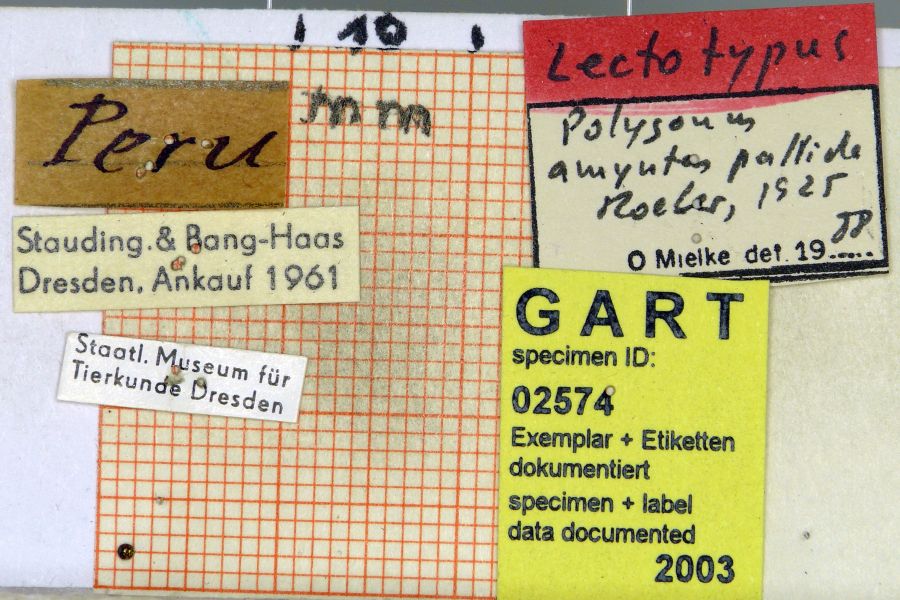 10
mm
Peru
Stauding. & Bang-Haas
Dresden, Ankauf 1961
Staatl. Museum für
Tierkunde Dresden
Lectotypus
Polygonus
amyntas pallida
Roeber, 1925
O Mielke det. 1988
GART
specimen ID:
02574
Exemplar + Etiketten
dokumentiert
specimen + label
data documented
2003